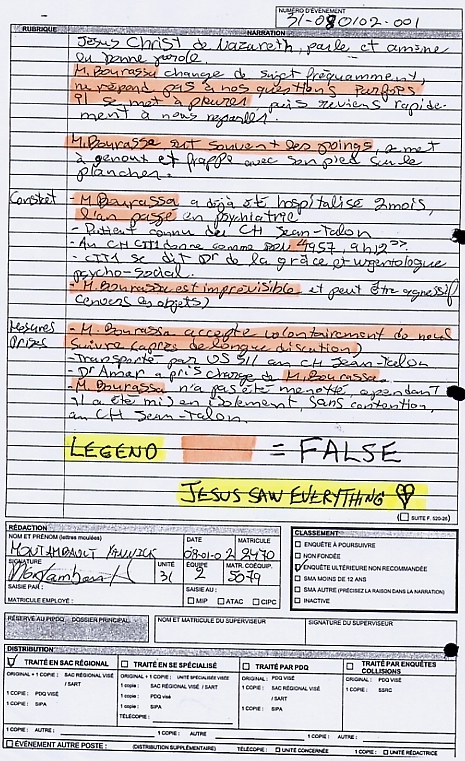 NUMÉRO D'ÉVÉNEMENT
31-080102-001
RUBRIQUE NARRATION
Jésus Christ de Nazareth, parle et amène
la bonne parole.
M. Bourassa change de sujet fréquamment,
ne répond pas à nos questions parfois
il se met à pleurer, puis reviens rapide-
ment à nous reparler.
M. Bourassa sert souvent des poings, se met
à genoux et frappe avec son pied sur le
plancher.
Constat - M. Bourassa a déjà été hospitalisé 2 mois,
l'an passé en psychiatrie
- Patient connu du CH Jean-Talon
- Au CH CIT1 donne comme 4957, 9h12
- CIT1 se dit Dr de la grâce et urgentologue
psycho-social.
- M. Bourassa est imprévisible et peut être agressif
(envers les objets)
Mesures Prises - M. Bourassa accepte volontairement de nous
suivre (après de longue discution)
- Transporté par US 311 au CH Jean-Talon
- Dr Amar a pris charge de M. Bourassa.
- M. Bourassa n'a pas été menotté, cependant
il a été mis en isolement, sans contention,
au CH Jean-Talon.
LEGEND = FALSE
JESUS SAW EVERYTHING
SUITE F. 520-26
RÉDACTION
NOM ET PRÉNOM (lettres moulées) DATE MATRICULE
MONTAMBAULT YANNICK 08-01-02 2470
SIGNATURE UNITÉ ÉQUIPE MATR. COÉQUIP.
Montambault 31 2 5079
SAISIE PAR : SAISIE AU :
MATRICULE EMPLOYÉ : MIP ATAC CIPC
CLASSEMENT
ENQUÊTE À POURSUIVRE
NON FONDÉE
ENQUÊTE ULTÉRIEURE NON RECOMMANDÉE
SMA MOINS DE 12 ANS
SMA AUTRE (PRÉCISEZ LA RAISON DANS LA NARRATION)
INACTIVE
RÉSERVÉ AU PIPDQ - DOSSIER PRINCIPAL NOM ET MATRICULE DU SUPERVISEUR SIGNATURE DU SUPERVISEUR
DISTRIBUTION
TRAITÉ EN SAC RÉGIONAL
ORIGINAL + 1 COPIE : SAC RÉGIONAL VISÉ / SART
1 copie : PDQ VISÉ
1 copie : SIPA
1 COPIE AUTRE :
TRAITÉ EN SE SPÉCIALISÉ
ORIGINAL + 1 COPIE : UNITÉ SPÉCIALISÉE VISÉE
1 copie : SAC RÉGIONAL VISÉ / SART
1 copie : PDQ visé
1 copie : SIPA
TÉLÉCOPIE :
1 COPIE : AUTRE :
TRAITÉ PAR PDQ
ORIGINAL : PDQ VISÉ
1 copie : SIPA
1 COPIE : AUTRE
TRAITÉ PAR ENQUÊTES COLLISIONS
ORIGINAL : PDQ VISÉ
1 copie : SSRC
1 COPIE : AUTRE
ÉVÉNEMENT AUTRE POSTE : (DISTRIBUTION SUPPLÉMENTAIRE) TÉLÉCOPIE : UNITÉ CONCERNÉE 1 COPIE : UNITÉ RÉDACTRICE